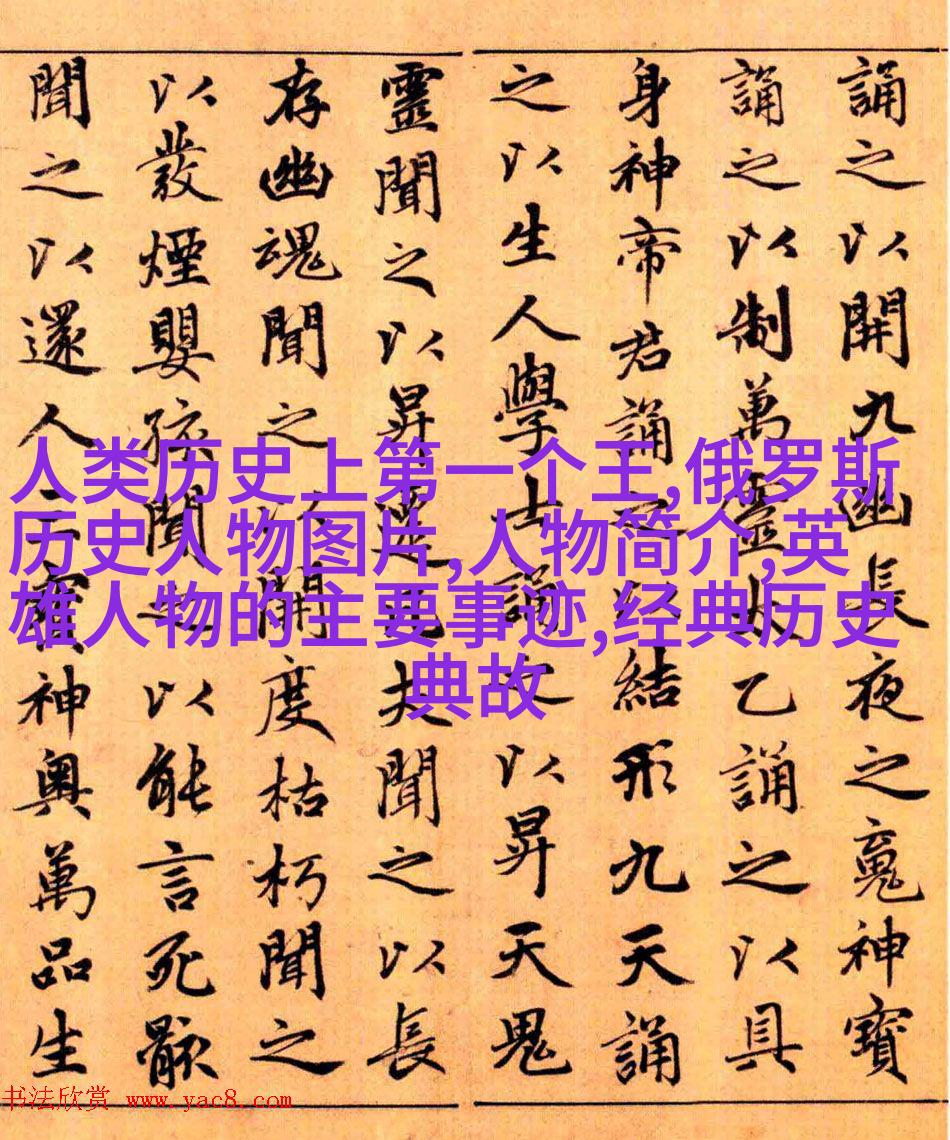 誦之以開九幽長夜之䰟神寶
誦之以制萬靈太乙誦之以具
身神帝君誦之以結形九天誦
之以生人學士誦之以昇天鬼
靈聞之以昇遷凡夫聞之以長
存幽魂聞之以開度枯朽聞之
以發煙嬰孩聞之以能言死骸
聞之以還人三寶神奧萬品生
人类历史上第一个王,俄罗斯
历史人物图片,人物简介,英
雄人物的主要事迹,经典历史
典故
书法欣赏 www.yac8.com